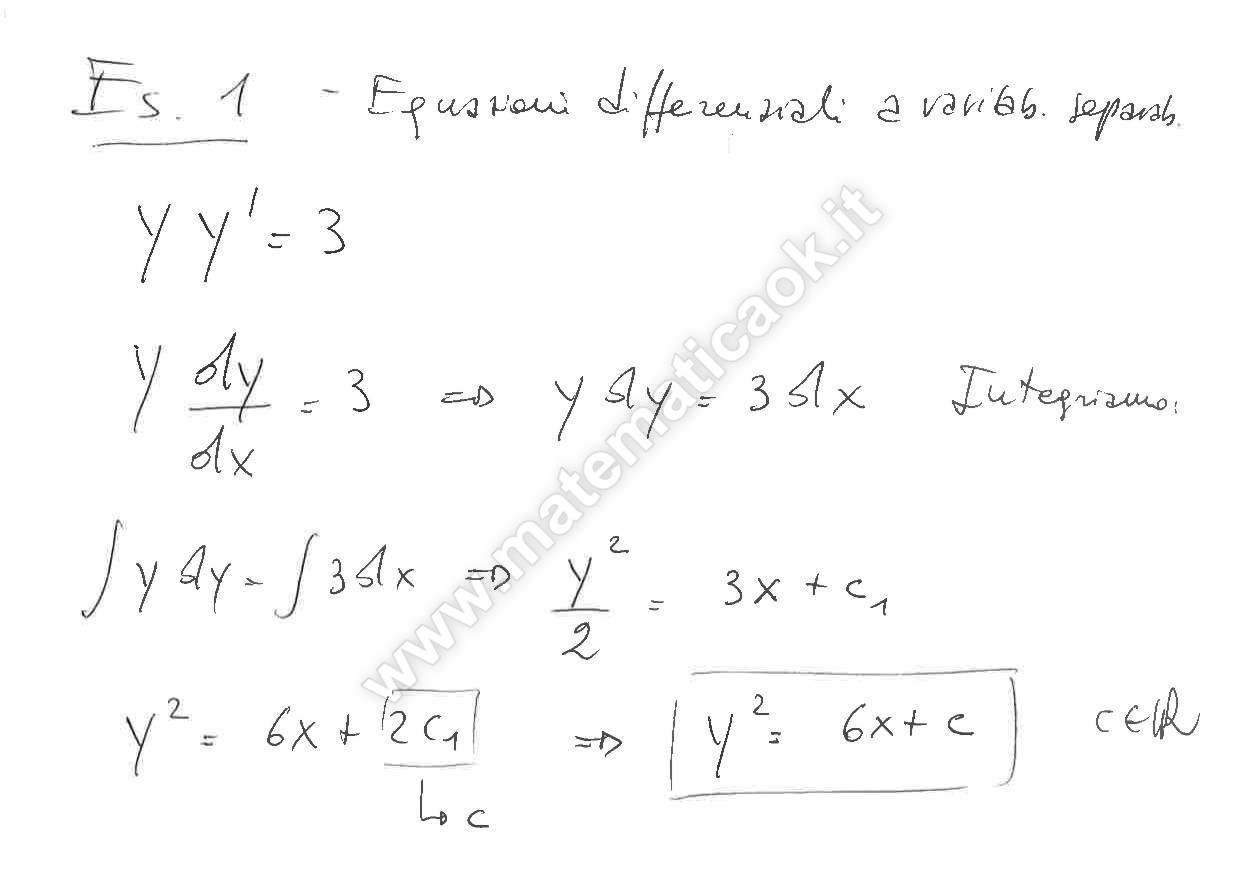 Es. 1 - Equazioni differenziali a variab. separab.
y y' = 3
y dy/dx = 3 => y dy = 3 dx Integriamo:
∫ y dy = ∫ 3 dx => y²/2 = 3x + c₁
y² = 6x + 2c₁ => y² = 6x + c c∈ℝ
↳ c
www.matematicaok.it